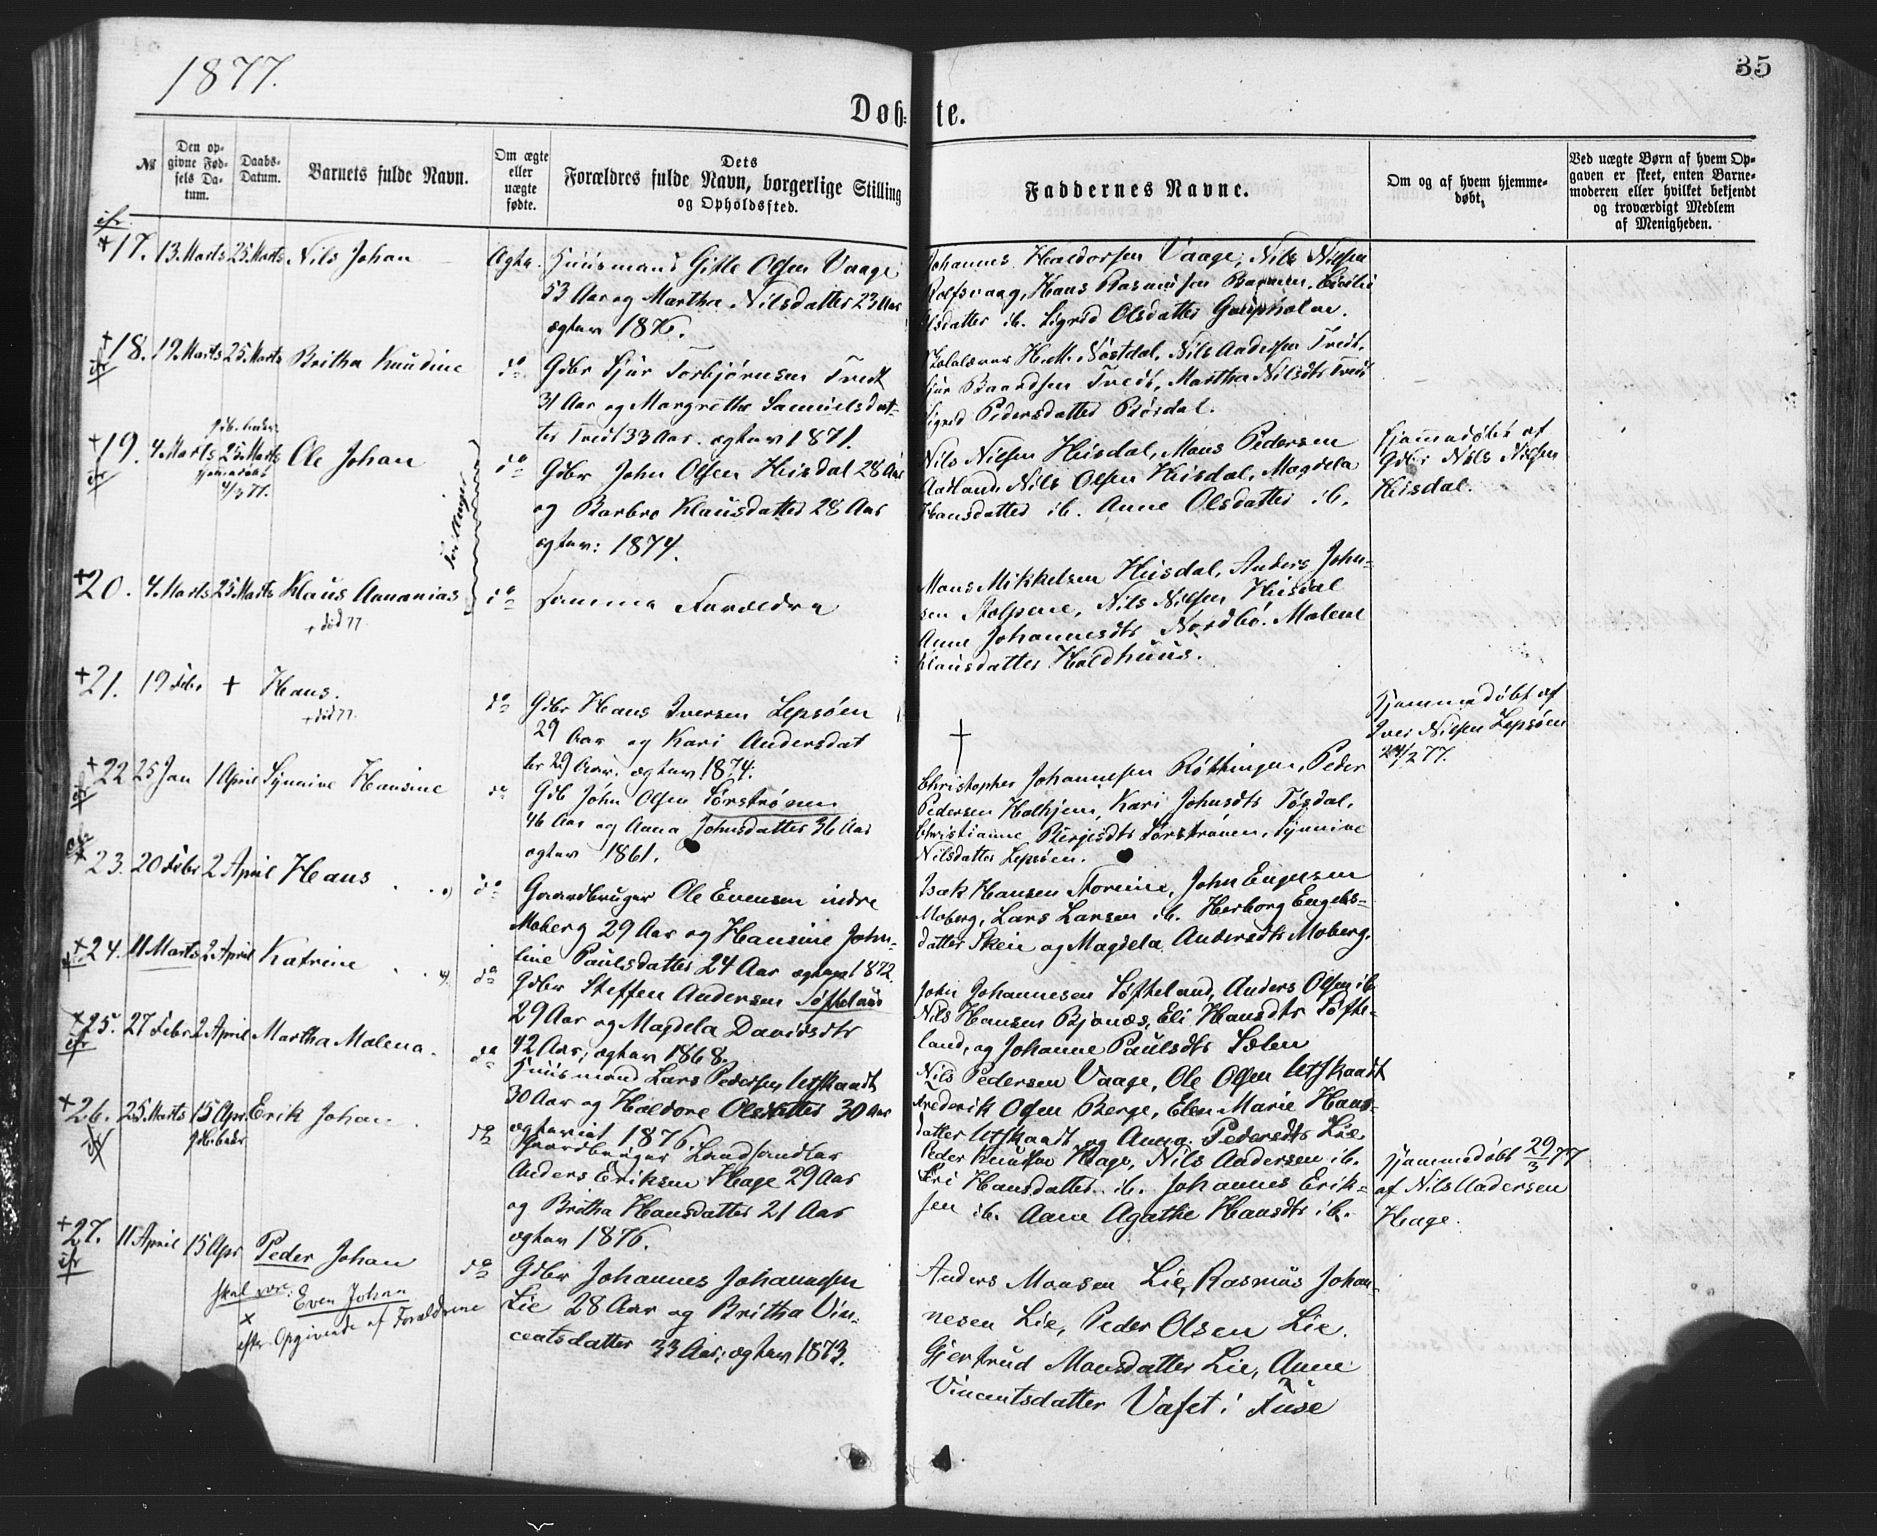 1877.
35
Døb-te.
№
Den op-
givne Fød-
sels Da-
tum.
Daabs-
Datum.
Barnets fulde Navn.
Om ægte
eller
uægte
fødte.
Dets
Forældres fulde Navn, borgerlige Stilling
og Opholdssted.
Faddernes Navne.
Om og af hvem hjemme-
døbt.
Ved uægte Børn af hvem Op-
gaven er skeet, enten Barne-
moderen eller hvilket bekjendt
og troværdigt Medlem
af Menigheden.
17. 13 Marts 25 Marts Nils Johan Ægte. Huusmand Gitle Olsen Vaage
53 Aar og Martha Nilsdatter 23 Aar
ægtev 1876.
Johannes Haldorsen Vaage, Nils Nilsen
Rolfsvaag, Hans Rasmussen
Olsdatter ib. Sigrid Olsdatter
18. 19 Marts 25 Marts Britha Knudine do Gdbr Sjur Torbjørnsen Tredt
31 Aar og Margrethe Samuelsdat-
ter Tredt 33 Aar. ægtev 1871.
H.M. Nøstdal, Nils Andersen Tredt,
Sjur Baardsen Tredt, Martha Nilsdtr Tredt
Sigrid Pedersdatter Røsdal.
19. 4 Marts 25 Marts Ole Johan do Gdbr John Olsen Heisdal 28 Aar
og Barbro Klausdatter 28 Aar
ægtev: 1874.
Nils Nilsen Heisdal, Mons Pedersen
Aatland Nils Olsen Heisdal, Magdela
Hansdatter ib. Anne Olsdatter ib.
Hjemmedøbt af
Gdbr Nils Nilsen
Heisdal.
Tvillinger
20. 4 Marts 25 Marts Klaus Annanias do samme Forældre
+ død 77.
Mons Mikkelsen Heisdal, Anders John-
sen Stolpene, Nils Nilsen Heisdal
Anne Johannesdtr Nordbø. Malene
Klausdatter Holdhuus.
21. 19 Febr + Hans. do Gdbr Hans Iversen Lepsøen
+ død 77.
29 Aar og Kari Andersdat
ter 29 Aar. ægtev 1874.
†
Hjemmedøbt af
Iver Nilsen Lepsøen
24/2 77.
22 25 Jan 1 April Synnive Hansine do Gdb John Olsen Sørstrønen
46 Aar og Anna Johnsdatter 36 Aar
ægtev 1861.
Christopher Johannesen Røttingen, Peder
Pedersen Halhjem, Kari Johnsdtr Tøsdal,
Christianne Børgesdtr Sørstrønen, Synnive
Nilsdatter Lepsøen.
23. 20 Febr 2 April Hans do Gaardbruger Ole Evensen indre
Moberg 29 Aar og Hansine John-
line Paulsdatter 24 Aar ægtev 1872.
Isak Hansen Storeine, John Engesen
Moberg, Lars Larsen ib. Herborg Engels-
datter Skeie og Magdela Andersdtr Moberg.
24. 11 Marts 2 April Katrine do Gdbr Steffen Andersen Søfteland
29 Aar og Magdela Davidsdtr
42 Aar; ægtev 1868.
John Johannesen Søfteland, Anders Olsen ib
Nils Hansen Bjånæs, Eli Hansdtr Søfte-
land, og Johanne Paulsdtr Sælen
25. 27 Febr 2 April Martha Malena. do Huusmand Lars Pedersen Utskaadt
30 Aar og Haldore Olsdatter 30 Aar
ægteviet 1876.
Nils Pedersen Vaage, Ole Olsen Utskaadt
Frederik Olsen Berge, Elen Marie Hans-
datter Utskaadt og Anna Pedersdtr Lie.
26. 25 Marts 15 Apr Erik Johan do Gaardbruger Landhandler
Anders Eriksen Hage 29 Aar
og Britha Hansdatter 21 Aar
ægtev 1876.
Peder Knudsen Hage, Nils Andersen ib.
Hansdatter ib. Johannes Erik-
sen ib. Aane Agathe Hansdtr ib.
Hjemmedøbt 29/3 77
af Nils Andersen
Hage.
27. 11 April 15 Apr Peder Johan do Gdbr Johannes Johannesen
Lie 28 Aar og Britha Vin-
centsdatter 33 Aar; ægtev 1873.
skal vær: Even Johan
efter Opgivende af Forældrene
Anders Monsen Lie, Rasmus Johan-
nesen Lie, Peder Olsen Lie.
Gjertrud Monsdatter Lie, Anne
Vincentsdatter Vafet i Fuse